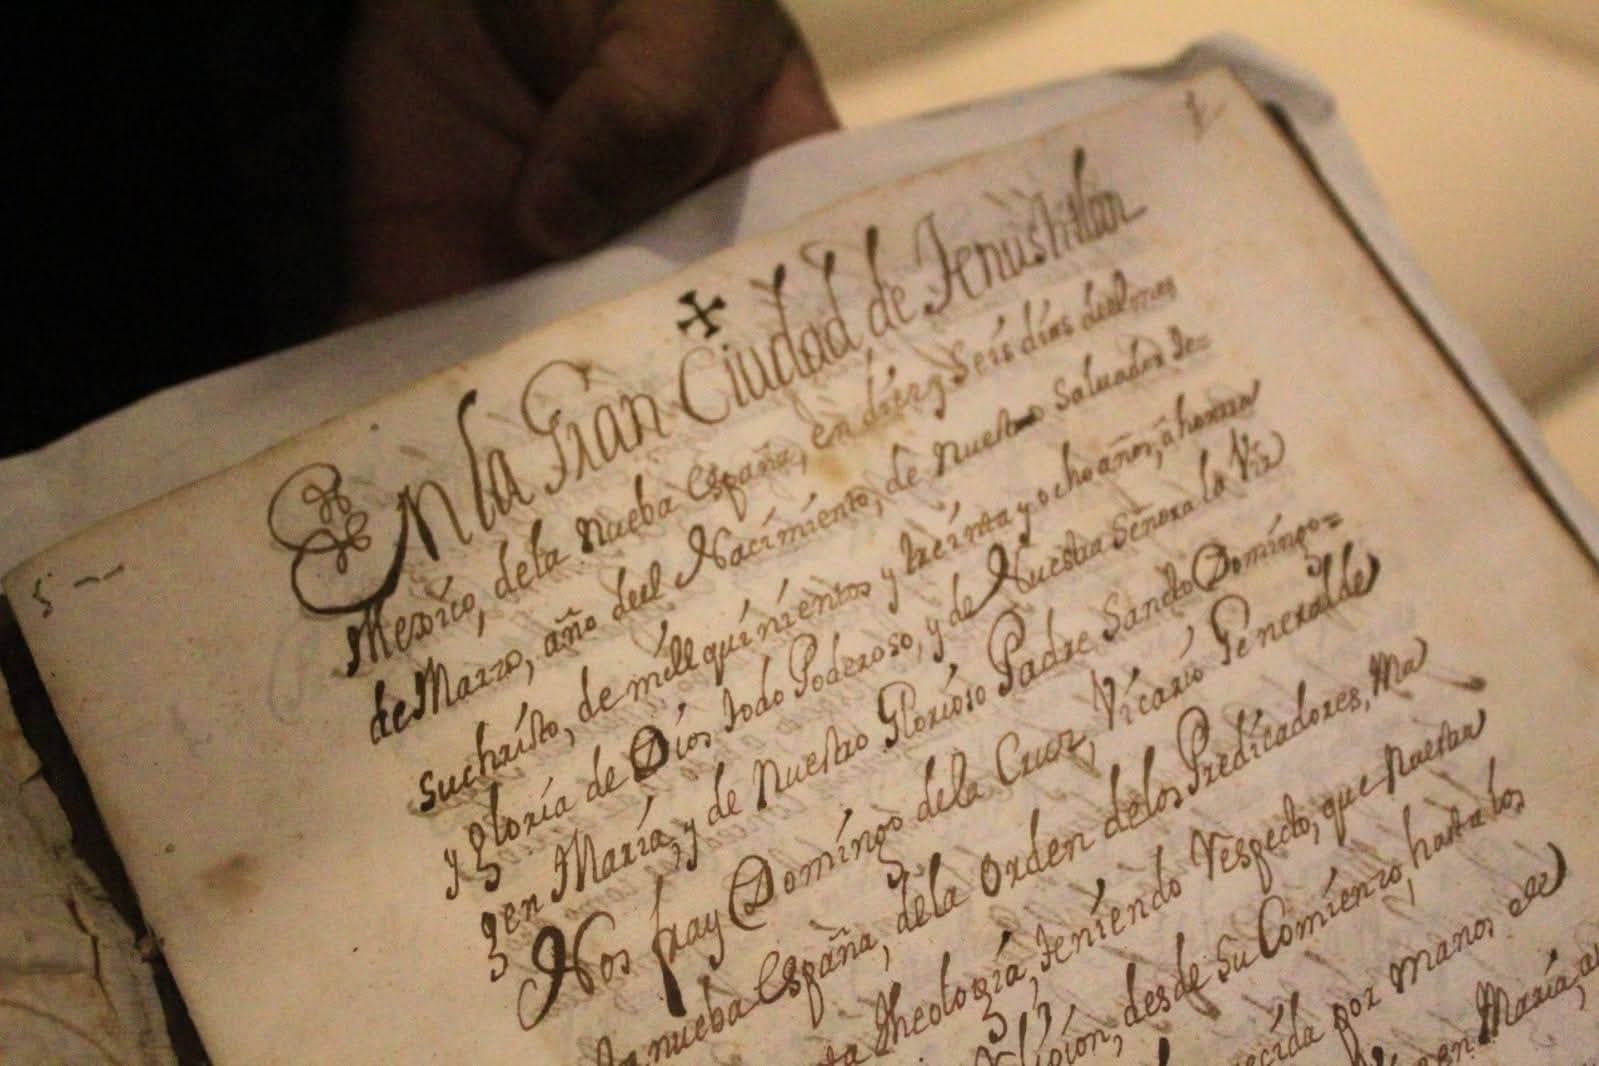 En la Gran Ciudad de Tenustitlan
Mexico, dela nueba España, en diez y seis dias del mes
de Marzo, año del Nacimiento, de nuestro Saluador Je=
suchristo, de mill quinientos y treinta y ocho años, á honrra
y gloria de Dios todo Poderoso, y de Nuestra Señora la Vir
gen Maria, y de Nuestro Glorioso Padre Sancto Domingo=
Nos fray Domingo dela Cruz, Vicario General de
la nueba España, dela Orden delos Predicadores, Ma
ta theologia, teniendo respecto, que nuestra
Religion, desde su Comienzo, hasta los
por manos de
en Maria,